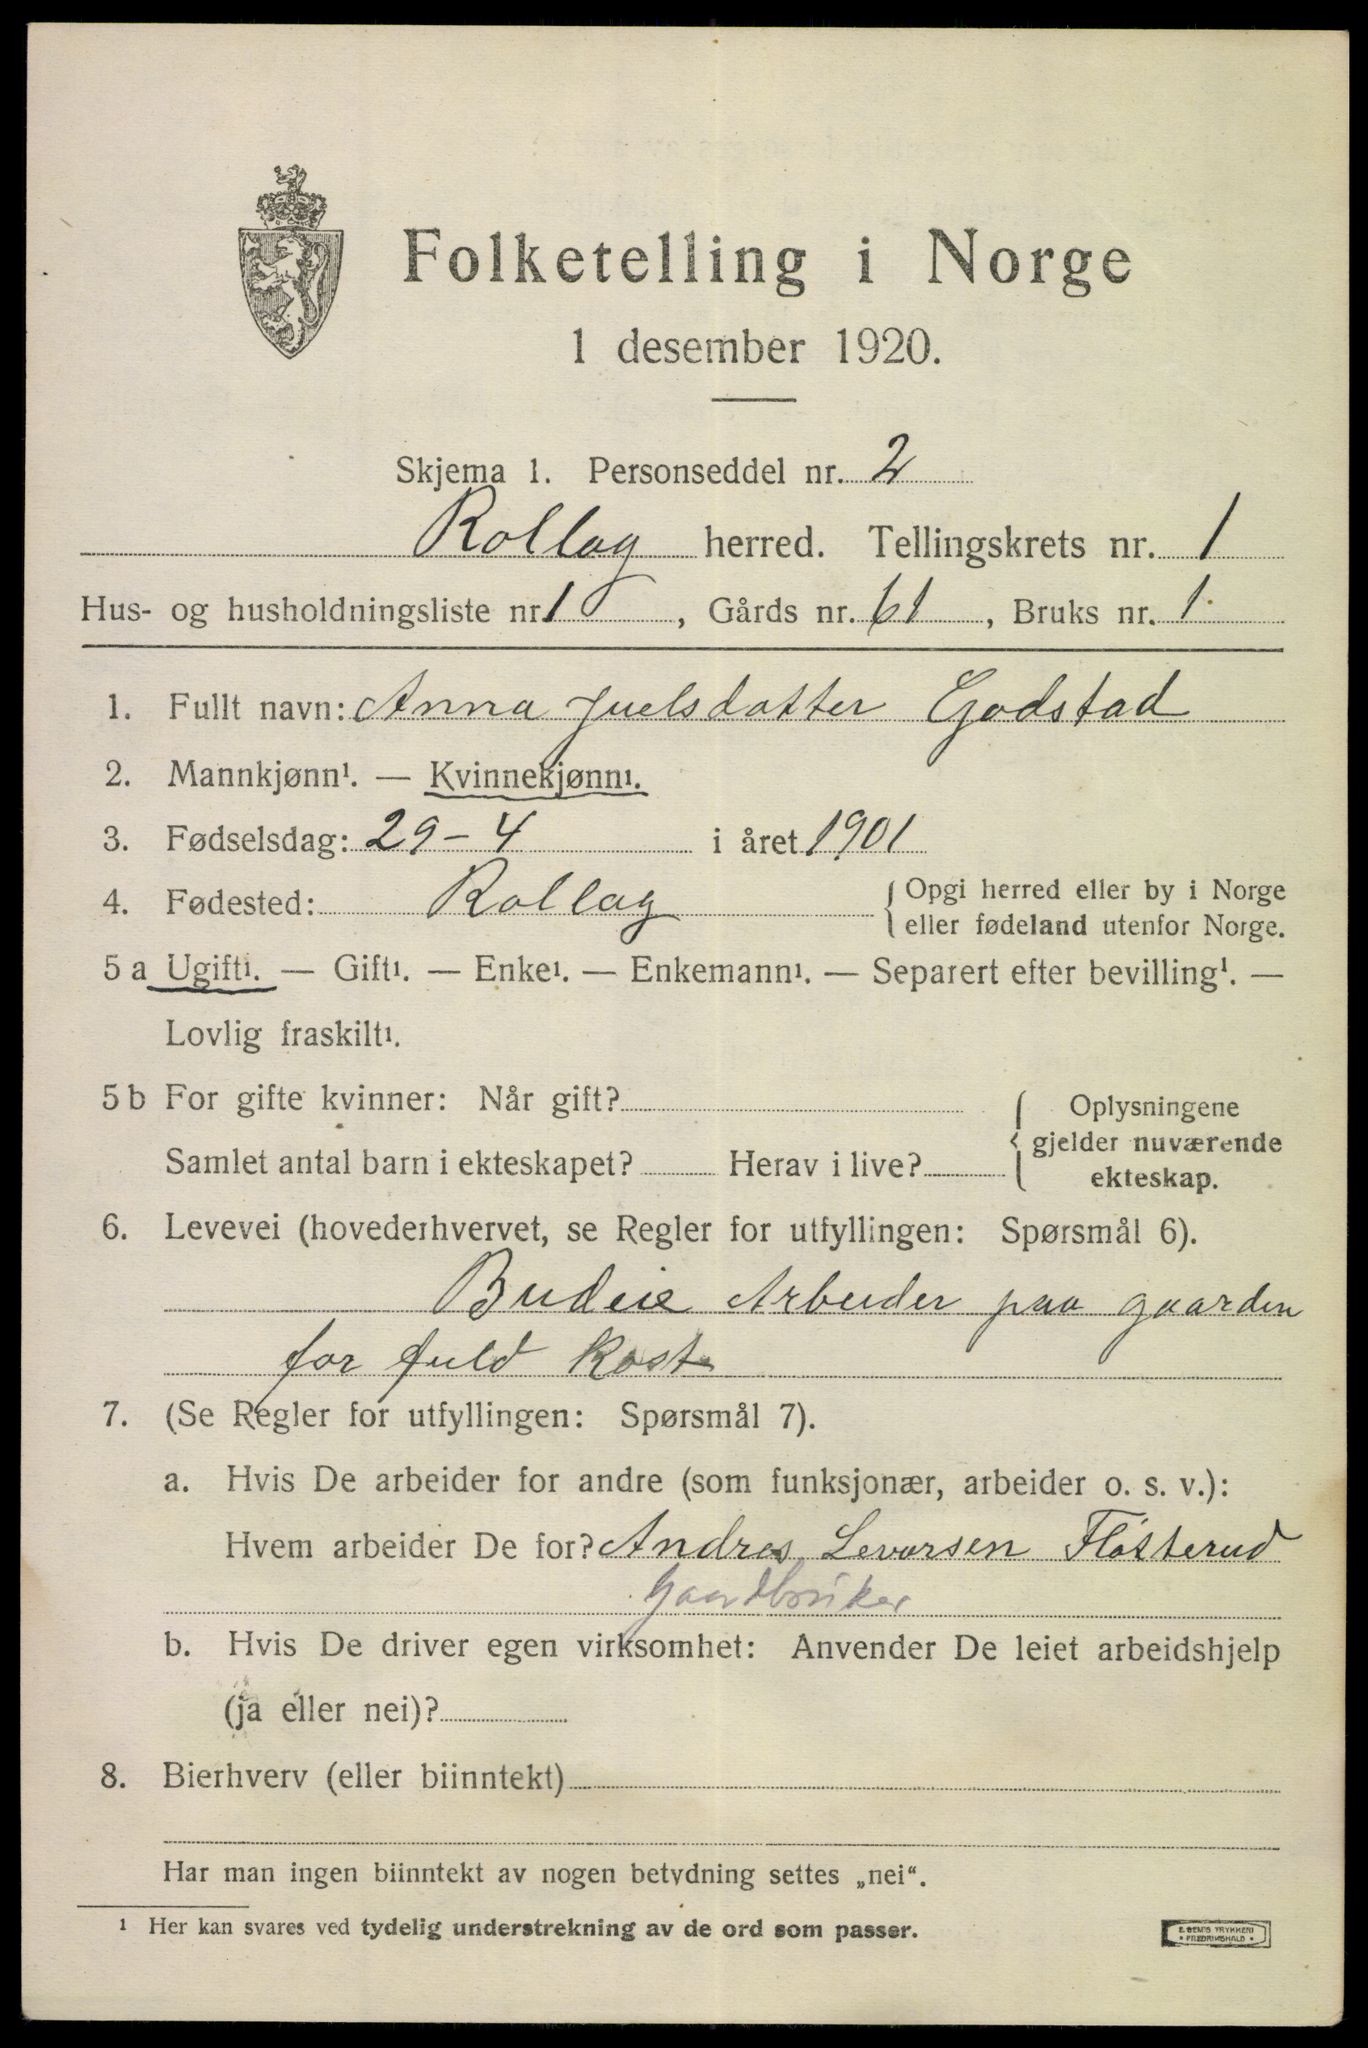 Folketelling i Norge
1 desember 1920.
Skjema 1. Personseddel nr. 2
Rollag herred. Tellingskrets nr. 1
Hus- og husholdningsliste nr. 1, Gårds nr. 61, Bruks nr. 1
1. Fullt navn: Anna Juelsdatter Godstad
2. Mannkjønn¹. — Kvinnekjønn¹.
3. Fødselsdag: 29-4 i året 1901
4. Fødested: Rollag { Opgi herred eller by i Norge
eller fødeland utenfor Norge.
5 a Ugift¹. — Gift¹. — Enke¹. — Enkemann¹. — Separert efter bevilling¹. —
Lovlig fraskilt¹.
5 b For gifte kvinner: Når gift?
Samlet antal barn i ekteskapet? Herav i live? { Oplysningene
gjelder nuværende
ekteskap.
6. Levevei (hovederhvervet, se Regler for utfyllingen: Spørsmål 6).
Budeie Arbeider paa gaarden
for fuld kost
7. (Se Regler for utfyllingen: Spørsmål 7).
a. Hvis De arbeider for andre (som funksjonær, arbeider o. s. v.):
Hvem arbeider De for? Andres Levorsen Fløsterud
Gaardbruker
b. Hvis De driver egen virksomhet: Anvender De leiet arbeidshjelp
(ja eller nei)?
8. Bierhverv (eller biinntekt)
Har man ingen biinntekt av nogen betydning settes „nei“.
¹ Her kan svares ved tydelig understrekning av de ord som passer.
E. SEM'S TRYKKERI
• FREDRIKSHALD •